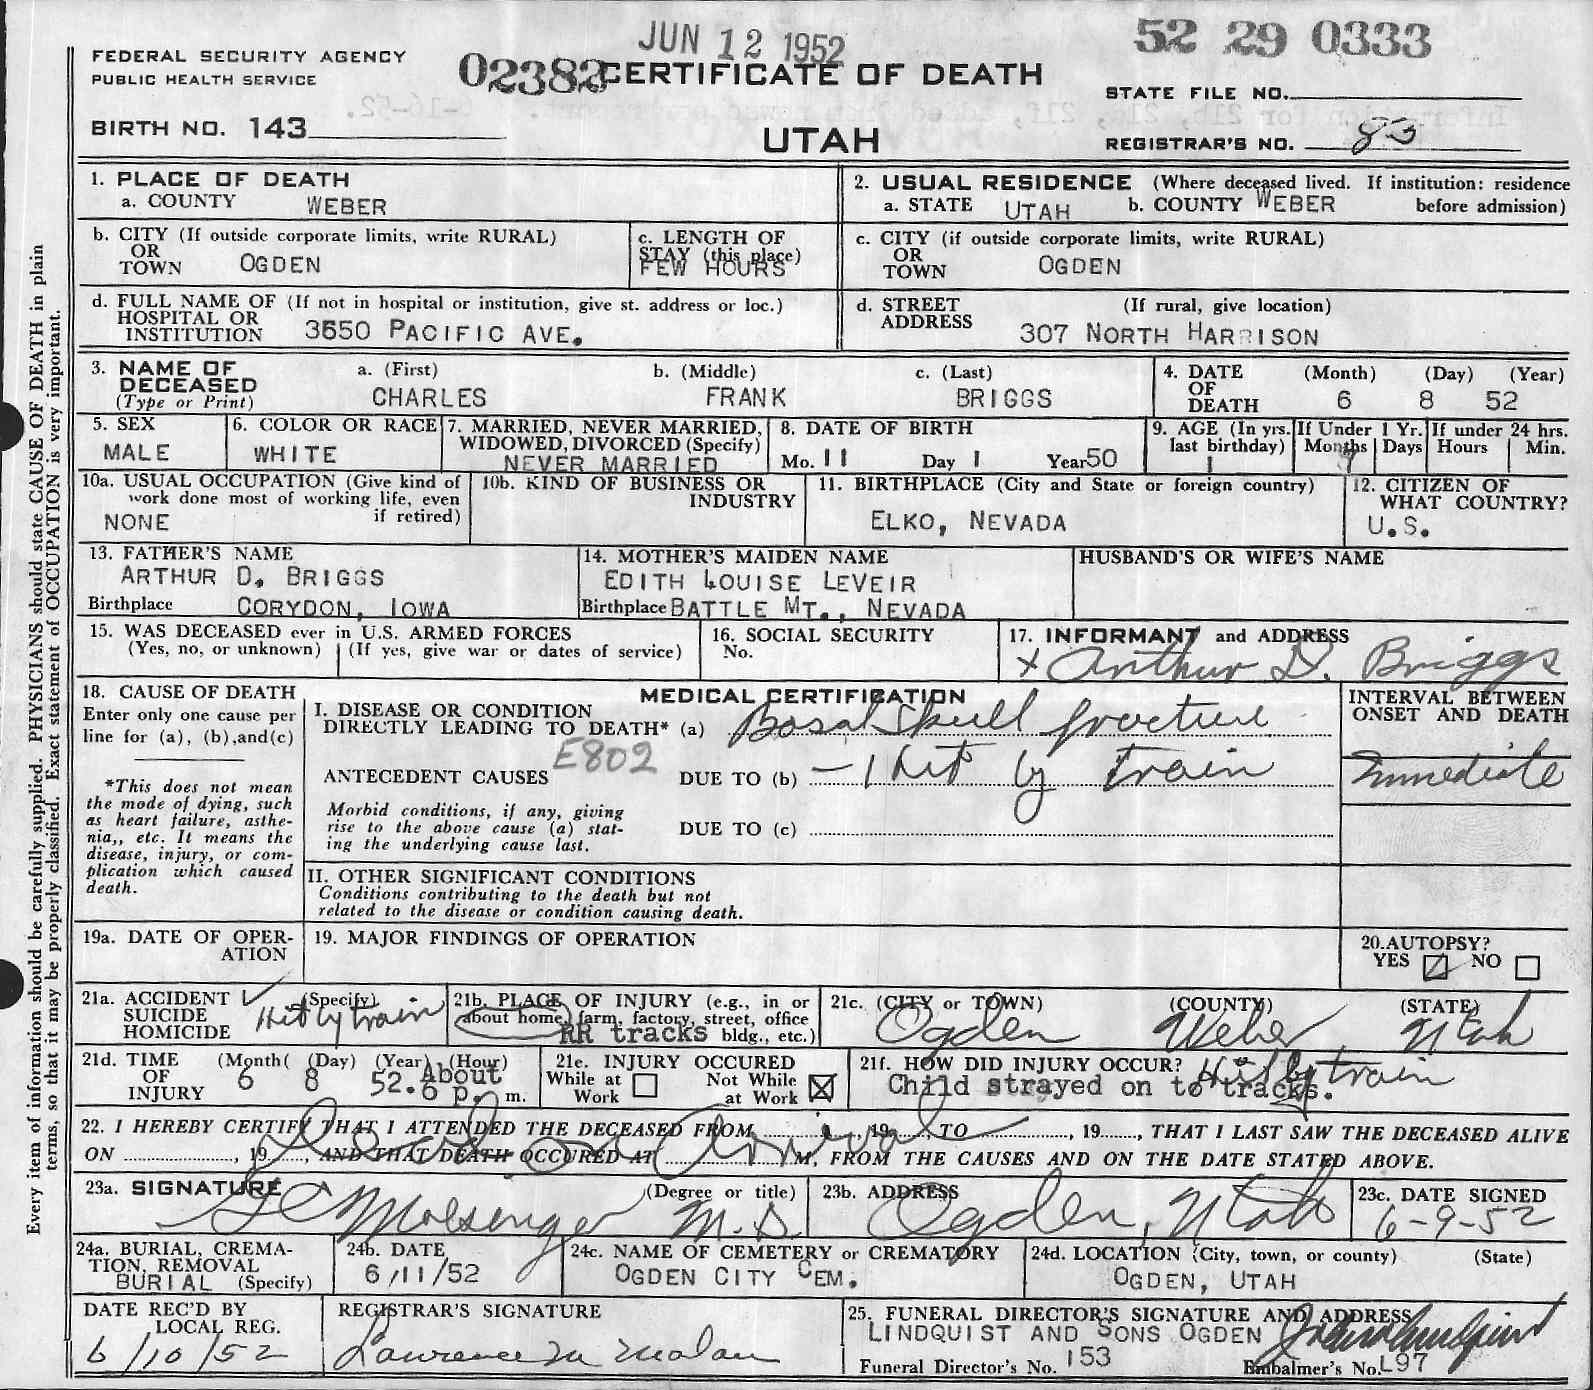 JUN 12 1952
52 29 0333
FEDERAL SECURITY AGENCY
PUBLIC HEALTH SERVICE
02382
CERTIFICATE OF DEATH
STATE FILE NO.
BIRTH NO. 143
UTAH
REGISTRAR'S NO. 83
1. PLACE OF DEATH
a. COUNTY WEBER
2. USUAL RESIDENCE (Where deceased lived. If institution: residence
a. STATE UTAH b. COUNTY WEBER before admission)
b. CITY (If outside corporate limits, write RURAL)
OR
TOWN OGDEN
c. LENGTH OF
STAY (this place)
FEW HOURS
c. CITY (if outside corporate limits, write RURAL)
OR
TOWN OGDEN
d. FULL NAME OF (If not in hospital or institution, give st. address or loc.)
HOSPITAL OR
INSTITUTION 3550 PACIFIC AVE.
d. STREET (If rural, give location)
ADDRESS 307 NORTH HARRISON
3. NAME OF a. (First) b. (Middle) c. (Last)
DECEASED
(Type or Print) CHARLES FRANK BRIGGS
4. DATE (Month) (Day) (Year)
OF
DEATH 6 8 52
5. SEX
MALE
6. COLOR OR RACE
WHITE
7. MARRIED, NEVER MARRIED,
WIDOWED, DIVORCED (Specify)
NEVER MARRIED
8. DATE OF BIRTH
Mo. 11 Day 1 Year 50
9. AGE (In yrs. last birthday) 1
If Under 1 Yr. Months 7 Days
If under 24 hrs. Hours Min.
10a. USUAL OCCUPATION (Give kind of
work done most of working life, even
if retired)
NONE
10b. KIND OF BUSINESS OR
INDUSTRY
11. BIRTHPLACE (City and State or foreign country)
ELKO, NEVADA
12. CITIZEN OF
WHAT COUNTRY?
U.S.
13. FATHER'S NAME
ARTHUR D. BRIGGS
Birthplace CORYDON, IOWA
14. MOTHER'S MAIDEN NAME
EDITH LOUISE LEVEIR
Birthplace BATTLE MT., NEVADA
HUSBAND'S OR WIFE'S NAME
15. WAS DECEASED ever in U.S. ARMED FORCES
(Yes, no, or unknown) (If yes, give war or dates of service)
16. SOCIAL SECURITY
No.
17. INFORMANT and ADDRESS
x Arthur D. Briggs
18. CAUSE OF DEATH
Enter only one cause per
line for (a), (b), and(c)
*This does not mean
the mode of dying, such
as heart failure, asthe-
nia,, etc. It means the
disease, injury, or com-
plication which caused
death.
MEDICAL CERTIFICATION
I. DISEASE OR CONDITION
DIRECTLY LEADING TO DEATH* (a) Basal Skull fracture
E802
ANTECEDENT CAUSES DUE TO (b) hit by train
Morbid conditions, if any, giving
rise to the above cause (a) stat-
ing the underlying cause last.
DUE TO (c)
INTERVAL BETWEEN
ONSET AND DEATH
Immediate
II. OTHER SIGNIFICANT CONDITIONS
Conditions contributing to the death but not
related to the disease or condition causing death.
19a. DATE OF OPER-
ATION
19. MAJOR FINDINGS OF OPERATION
20. AUTOPSY?
YES NO
21a. ACCIDENT (Specify)
SUICIDE
HOMICIDE
Hit by train
21b. PLACE OF INJURY (e.g., in or
about home, farm, factory, street, office
RR tracks bldg., etc.)
21c. (CITY or TOWN) (COUNTY) (STATE)
Ogden Weber Utah
21d. TIME (Month( (Day) (Year) (Hour)
OF
INJURY 6 8 52. About 6 p. m.
21e. INJURY OCCURED
While at Work Not While at Work
21f. HOW DID INJURY OCCUR? Hit by train
Child strayed on to tracks.
22. I HEREBY CERTIFY THAT I ATTENDED THE DECEASED FROM , 19 , TO , 19 , THAT I LAST SAW THE DECEASED ALIVE
Dead on Arrival
ON , 19 , AND THAT DEATH OCCURED AT M, FROM THE CAUSES AND ON THE DATE STATED ABOVE.
23a. SIGNATURE (Degree or title)
M.D.
23b. ADDRESS
Ogden, Utah
23c. DATE SIGNED
6-9-52
24a. BURIAL, CREMA-
TION, REMOVAL
BURIAL (Specify)
24b. DATE
6/11/52
24c. NAME OF CEMETERY or CREMATORY
OGDEN CITY CEM.
24d. LOCATION (City, town, or county) (State)
OGDEN, UTAH
DATE REC'D BY
LOCAL REG.
6/10/52
REGISTRAR'S SIGNATURE
Lawrence M Malan
25. FUNERAL DIRECTOR'S SIGNATURE AND ADDRESS
LINDQUIST AND SONS OGDEN
Funeral Director's No. 153 Embalmer's No. L97
Every item of information should be carefully supplied. PHYSICIANS should state CAUSE OF DEATH in plain
terms, so that it may be properly classified. Exact statement of OCCUPATION is very important.